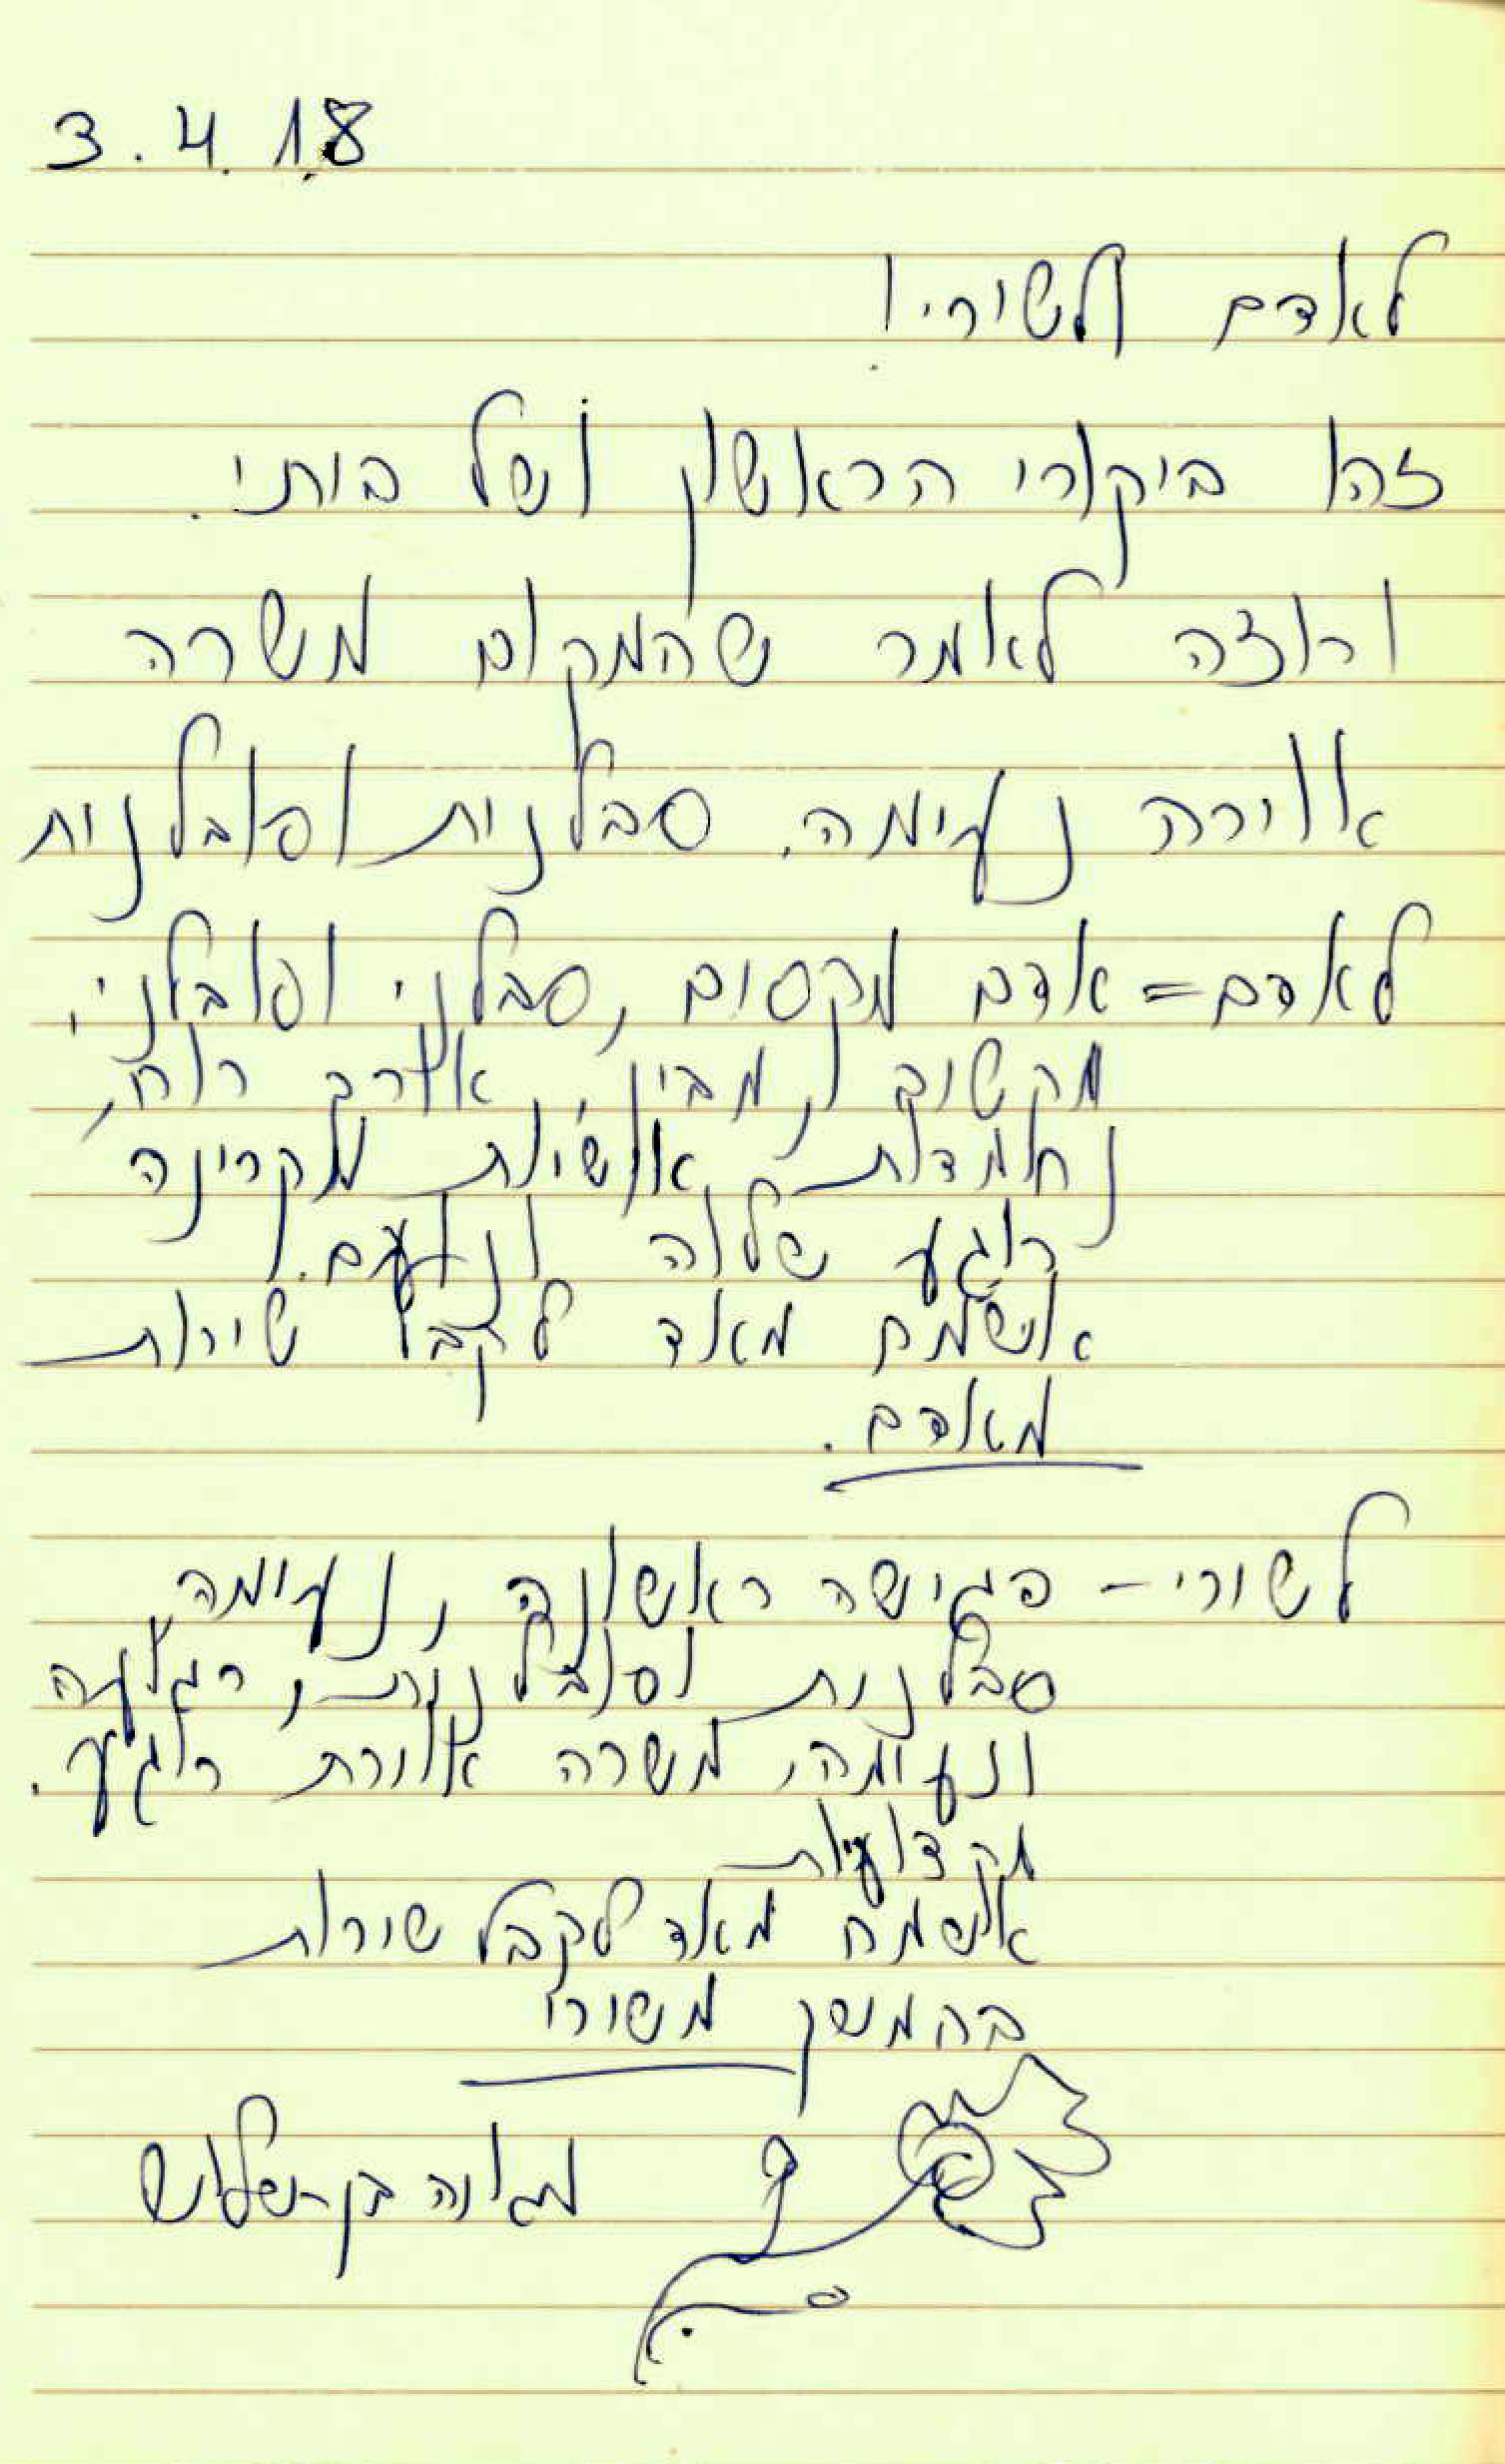 3.4.18
לאדם ולשורי!
זהו ביקורי הראשון ושל בותי.
ורוצה לאמר שהמקום משרה
אווירה נעימה. סבלנית וסובלנית
לאדם = אדם מקסים, סבלני וסובלני,
מקשיב, מבין, אורך רוח,
נחמדות אנושית מקרינה
רוגע שלוה ונועם.
אשמח מאד לקבל שירות
מאדם.
לשורי - פגישה ראשונה, נעימה
סבלנית וסובלנית, רגועה
ונעימה, משרה אוירת רוגע.
מקצועית
אשמח מאד לקבל שירות
בהמשך משורי
בן-שלוש